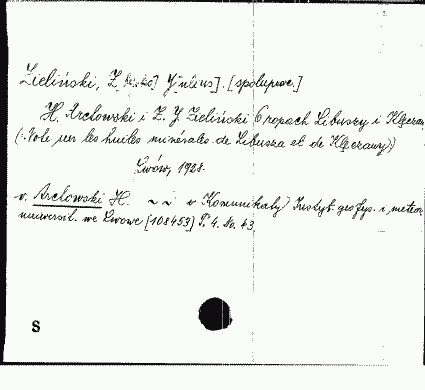 Zieliński, Z. J[uljusz]. [współprac.]
H. Arctowski i Z. J. Zieliński O ropach Libuszy i Klęczan
(Note sur les huiles minérales de Libusza et de Klęczany)
Lwów, 1928.
v. Arctowski H. ~ ~ v Komunikaty) Instyt. geofys. i meteor.
uniwersit. we Lwowie [108453] T. 4. No. 43
S